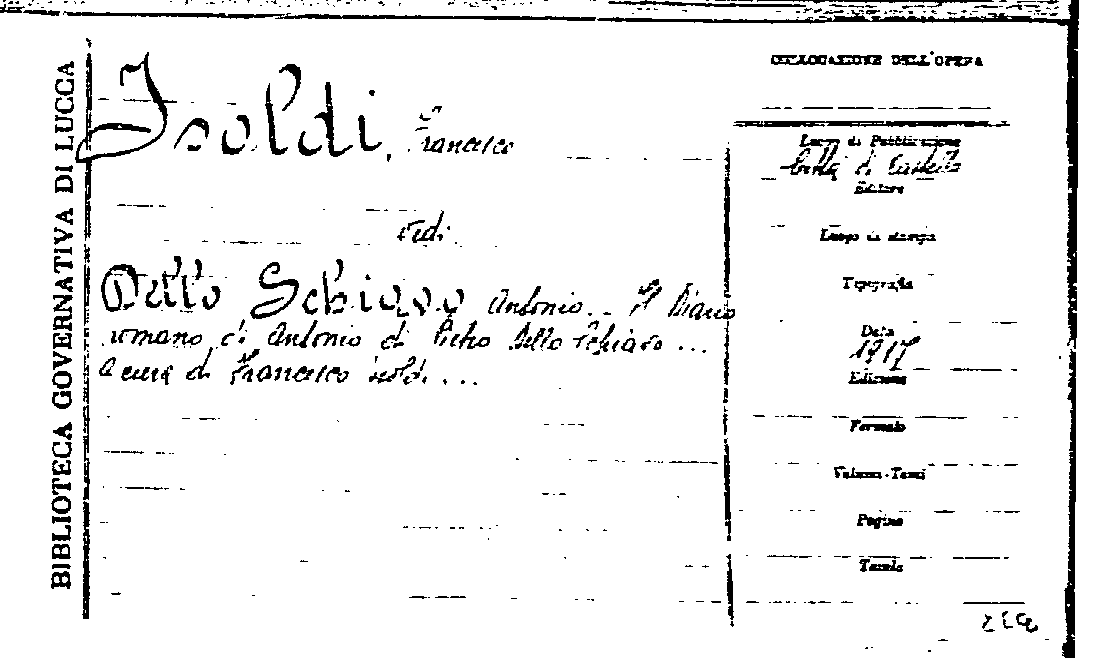 BIBLIOTECA GOVERNATIVA DI LUCCA
Isoldi, Francesco
vedi
Dello Schiavo Antonio.. Il Diario
romano di Antonio di Pietro Dello Schiavo ...
a cura di Francesco Isoldi ...
COLLOCAZIONE DELL'OPERA
Luogo di Pubblicazione
Città di Castello
Editore
Luogo di stampa
Tipografia
Data
1917
Edizione
Formato
Volumi-Tomi
Pagine
Tavole